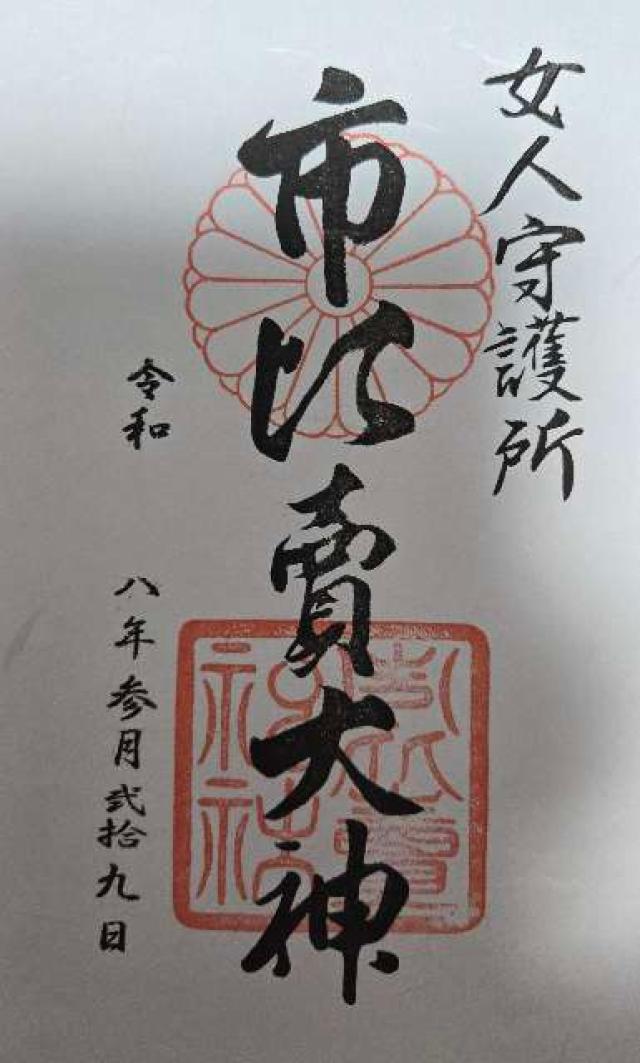 女人守護所
市比賣大神
令和
八年参月弐拾九日